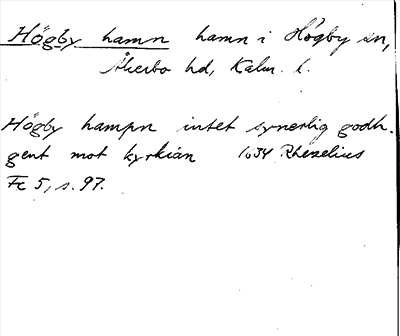 Högby hamn hamn i Högby sn,
Åkerbo hd, Kalm. l.
Högby hampn intet synerlig godh.
gent mot kyrkian 1634 Rhezelius
Fc 5, s. 97.